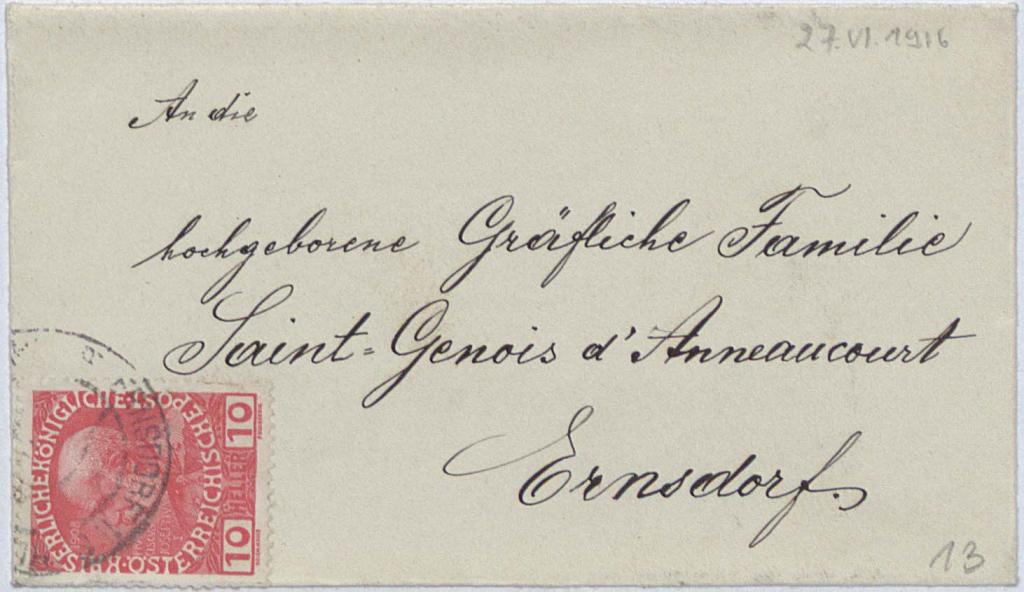 27.VI.1916
An die
hochgeborene Gräfliche Familie
Saint=Genois d'Anneaucourt
Ernsdorf.
KAISERLICHEKÖNIGLICHE ÖSTERREICHISCHE POST
10 HELLER 10
13